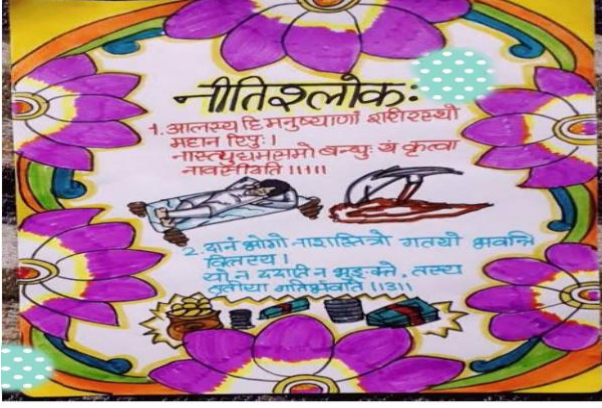 नीतिश्लोक:
1. आलस्य हि मनुष्याणां शरीरस्थो
महान रिपु: ।
नास्त्युद्यमसमो बन्धु: यं कृत्वा
नावसीदति ।।1।।
2. दानं भोगो नाशस्तिस्त्रो गतयो भवन्ति
वित्तस्य ।
यो न ददाति न भुङ्क्ते, तस्य
तृतीया गतिर्भवति ।।3।।